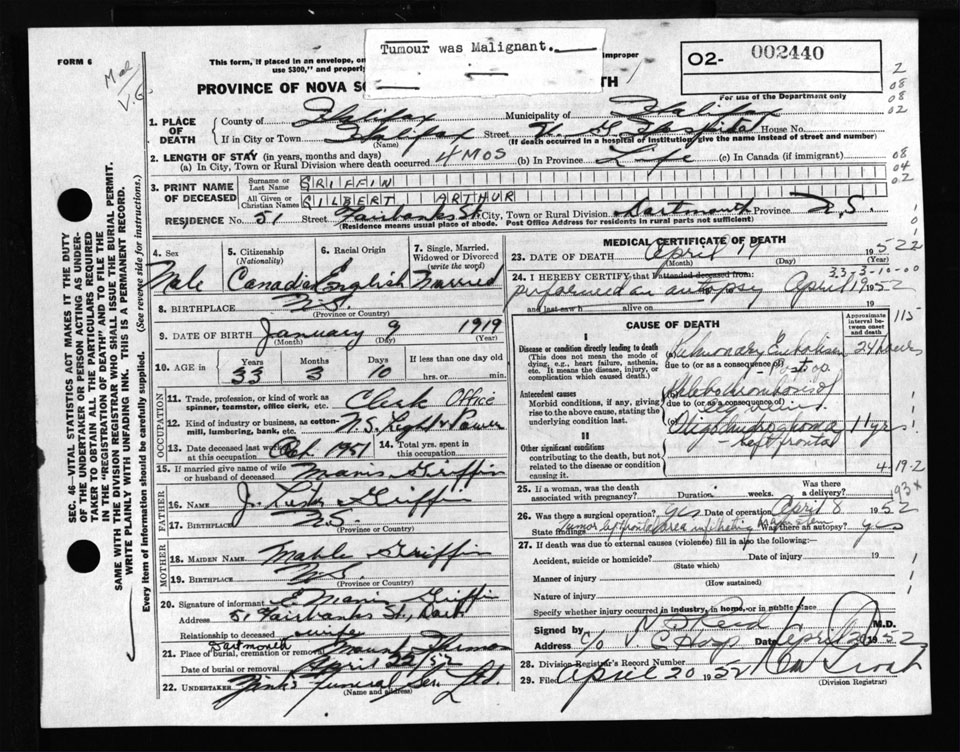 Tumour was Malignant.
FORM 6
This form, if placed in an envelope, on
improper
use $300," and properly
02- 002440
For use of the Department only
PROVINCE OF NOVA SC
TH
1. PLACE OF DEATH
County of Halifax Municipality of Halifax
If in City or Town Halifax Street V. G. Hospital House No.
(Name) (If death occurred in a hospital or institution, give the name instead of street and number)
2. LENGTH OF STAY (in years, months and days)
(a) In City, Town or Rural Division where death occurred 4 mos (b) In Province Life (c) In Canada (if immigrant)
3. PRINT NAME OF DECEASED
Surname or Last Name GRIFFIN
All Given or Christian Names GILBERT ARTHUR
RESIDENCE No. 51 Street Fairbanks St. City, Town or Rural Division Dartmouth Province N.S.
(Residence means usual place of abode. Post Office Address for residents in rural parts not sufficient)
4. Sex Male
5. Citizenship (Nationality) Canadian
6. Racial Origin English
7. Single, Married, Widowed or Divorced (write the word) Married
8. BIRTHPLACE N.S.
(Province or Country)
9. DATE OF BIRTH January 9 1919
(Month) (Day) (Year)
10. AGE in Years 33 Months 3 Days 10 If less than one day old hrs. or min.
OCCUPATION
11. Trade, profession, or kind of work as spinner, teamster, office clerk, etc. Clerk Office
12. Kind of industry or business, as cotton-mill, lumbering, bank, etc. N.S. Light & Power
13. Date deceased last worked at this occupation Oct 1951 14. Total yrs. spent in this occupation
15. If married give name of wife or husband of deceased Griffin
FATHER
16. NAME J. Griffin
17. BIRTHPLACE N.S.
(Province or Country)
MOTHER
18. MAIDEN NAME Griffin
19. BIRTHPLACE N.S.
(Province or Country)
20. Signature of informant E Griffin
Address 51 Fairbanks St., Dart
Relationship to deceased wife
21. Place of burial, cremation or removal Dartmouth Mount Hermon
Date of burial or removal April 22/52
22. UNDERTAKER Zink's Funeral Ser. Ltd.
(Name and address)
MEDICAL CERTIFICATE OF DEATH
23. DATE OF DEATH April 19 1952
(Month) (Day) (Year)
24. I HEREBY CERTIFY that I attended deceased from:
performed an autopsy April 19 1952
and last saw h alive on 19
CAUSE OF DEATH
Approximate interval between onset and death
I
Disease or condition directly leading to death
(This does not mean the mode of dying, e.g., heart failure, asthenia, etc. It means the disease, injury, or complication which caused death.)
Pulmonary Embolism 24 hours
due to (or as a consequence of)
- Post op.
Antecedent causes
Morbid conditions, if any, giving rise to the above cause, stating the underlying condition last.
Phlebothrombosis of
due to (or as a consequence of)
leg veins
Oligodendroglioma 11 yrs
- left frontal
II
Other significant conditions contributing to the death, but not related to the disease or condition causing it
4-19-2
25. If a woman, was the death associated with pregnancy? Duration weeks. Was there a delivery?
26. Was there a surgical operation? yes Date of operation April 8 1952
State findings Tumor left frontal area infiltrating Was there an autopsy? yes
27. If death was due to external causes (violence) fill in also the following:—
Accident, suicide or homicide? Date of injury 19
(State which)
Manner of injury
(How sustained)
Nature of injury
Specify whether injury occurred in industry, in home, or in public place
Signed by M.D.
Address c/o V. G. Hosp Date April 20 1952
28. Division Registrar's Record Number
29. Filed April 20 1952
(Division Registrar)
SEC. 46—VITAL STATISTICS ACT MAKES IT THE DUTY OF THE UNDERTAKER OR PERSON ACTING AS UNDERTAKER TO OBTAIN ALL THE PARTICULARS REQUIRED IN THE "REGISTRATION OF DEATH" AND TO FILE THE SAME WITH THE DIVISION REGISTRAR WHO SHALL ISSUE THE BURIAL PERMIT.
WRITE PLAINLY WITH UNFADING INK. THIS IS A PERMANENT RECORD.
Every item of information should be carefully supplied. (See reverse side for instructions.)